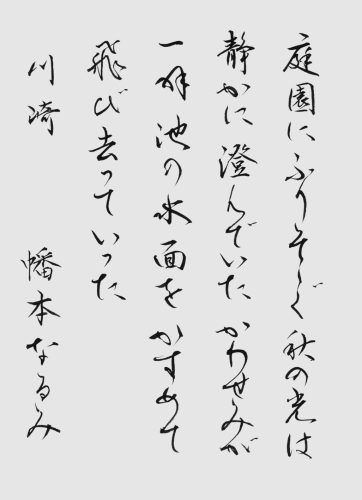 庭園にふりそそぐ秋の光は
静かに澄んでいたかわせみが
一羽池の水面をかすめて
飛び去っていった
川崎 幡本なるみ